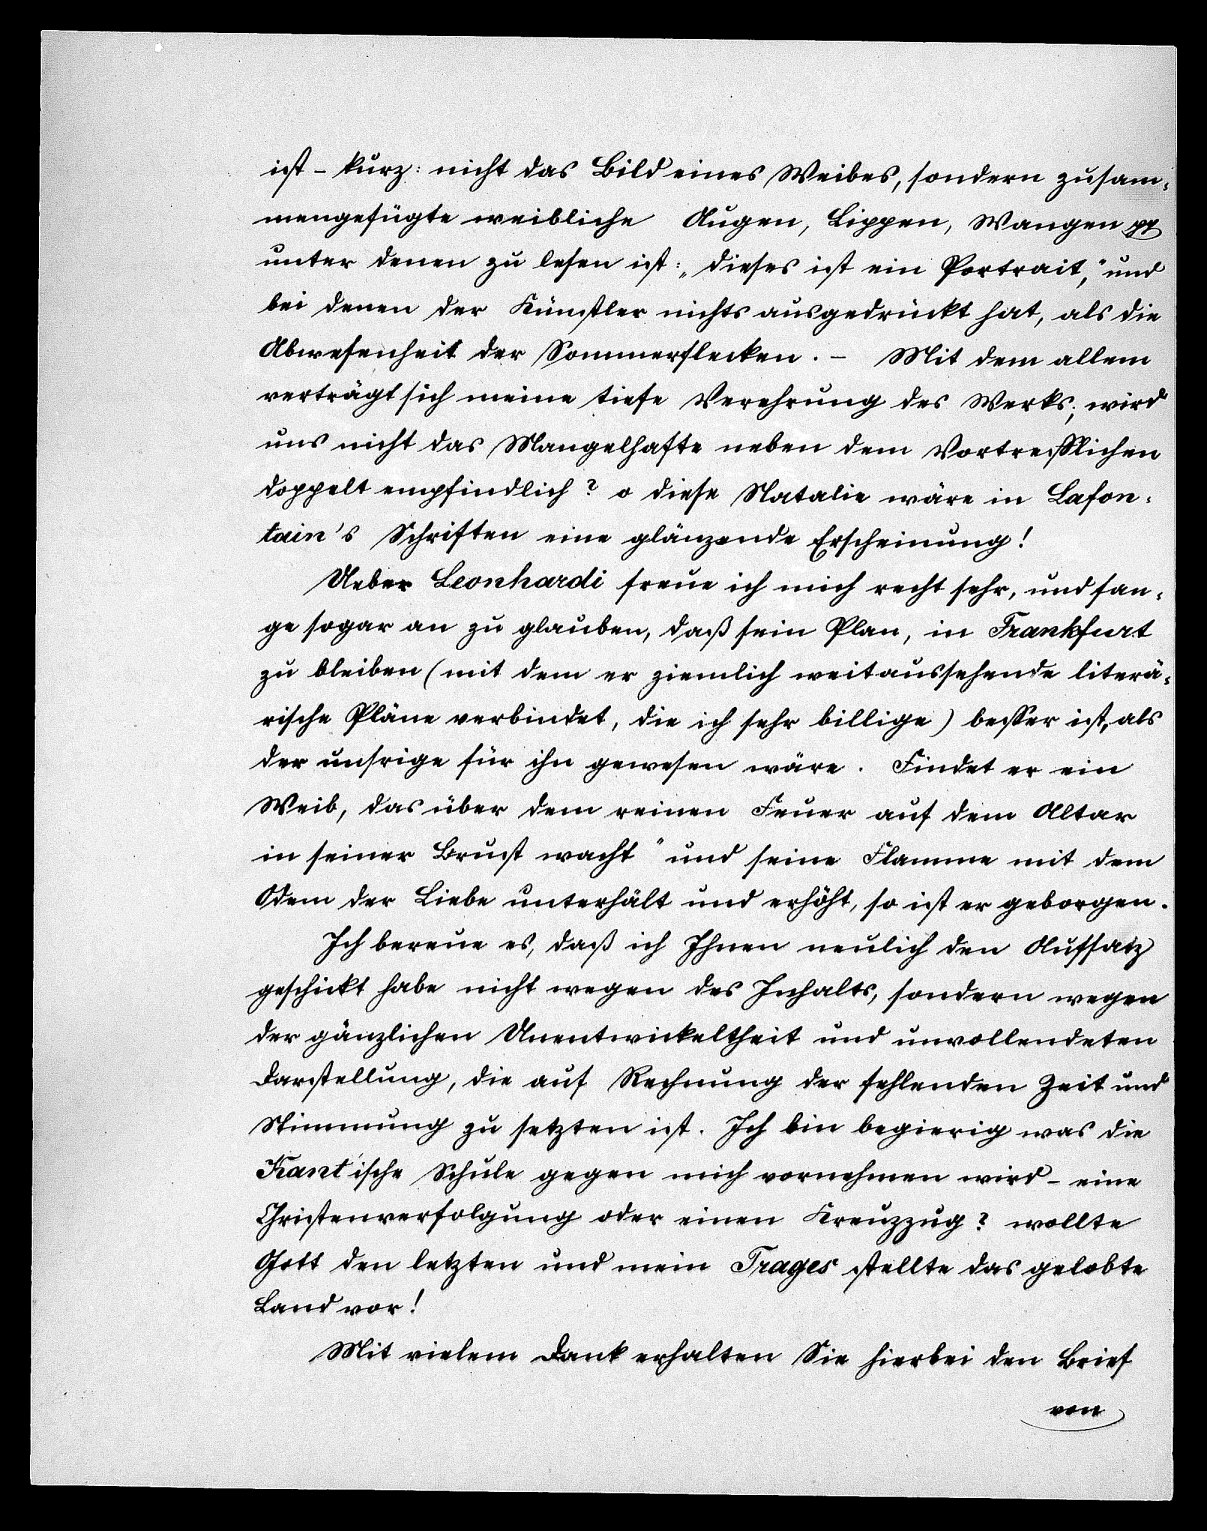 ist - kurz: nicht das Bild eines Weibes, sondern zusam-
mengefügte weibliche Augen, Lippen, Wangen pp
unter denen zu lesen ist: „dieses ist ein Portrait," und
bei denen der Künstler nichts ausgedrückt hat, als die
Abwesenheit der Sommerflecken. - Mit dem allem
verträgt sich meine tiefe Verehrung des Werks; wird
uns nicht das Mangelhafte neben dem Vortrefflichen
doppelt empfindlich? o diese Natalie wäre in Lafon-
tain's Schriften eine glänzende Erscheinung!
Ueber Leonhardi freue ich mich recht sehr, und fan-
ge sogar an zu glauben, daß sein Plan, in Frankfurt
zu bleiben (mit dem er ziemlich weitaussehende literä-
rische Pläne verbindet, die ich sehr billige) besser ist, als
der unsrige für ihn gewesen wäre. Findet er ein
Weib, das über dem reinen Feuer auf dem Altar
in seiner Brust wacht" und seine Flamme mit dem
Odem der Liebe unterhält und erhöht, so ist er geborgen.
Ich bereue es, daß ich Ihnen neulich den Aufsatz
geschickt habe nicht wegen des Inhalts, sondern wegen
der gänzlichen Unentwickeltheit und unvollendeten
Darstellung, die auf Rechnung der fehlenden Zeit und
Stimmung zu setzten ist. Ich bin begierig was die
Kant'ische Schule gegen mich vornehmen wird - eine
Christenverfolgung oder einen Kreuzzug? wollte
Gott den letzten und mein Trages stellte das gelobte
Land vor!
Mit vielem Dank erhalten Sie hierbei den Brief
von